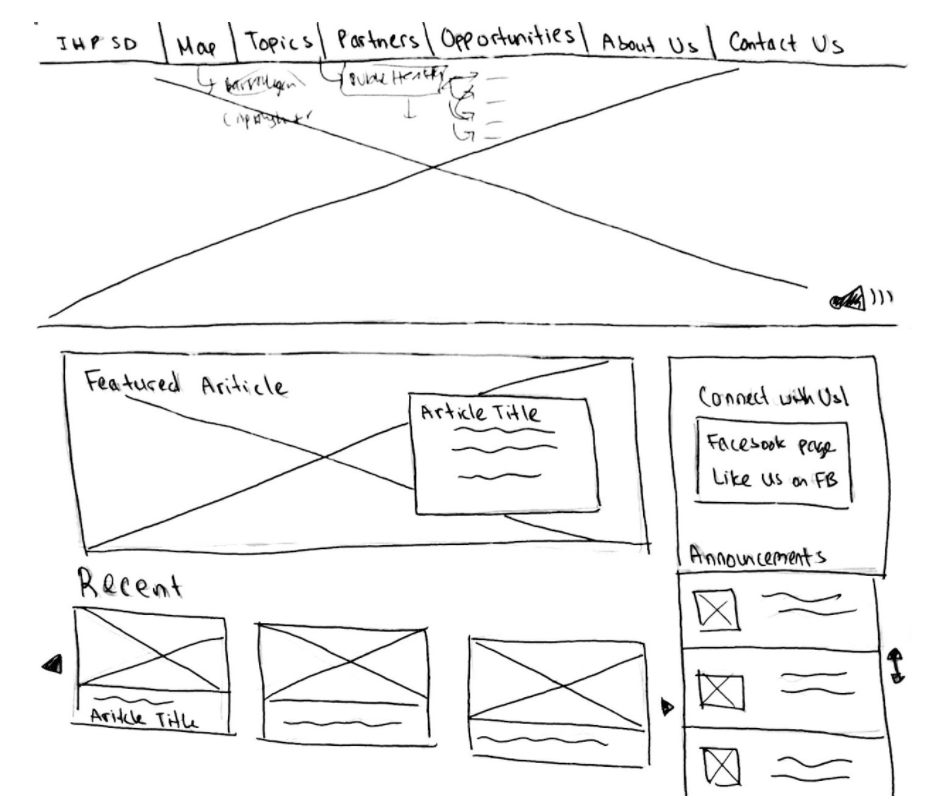 IHPSD | Map | Topics | Partners | Opportunities | About Us | Contact Us
Featured Ariticle
Article Title
Connect with Us!
Facebook page
Like Us on FB
Announcements
Recent
Aritcle Title